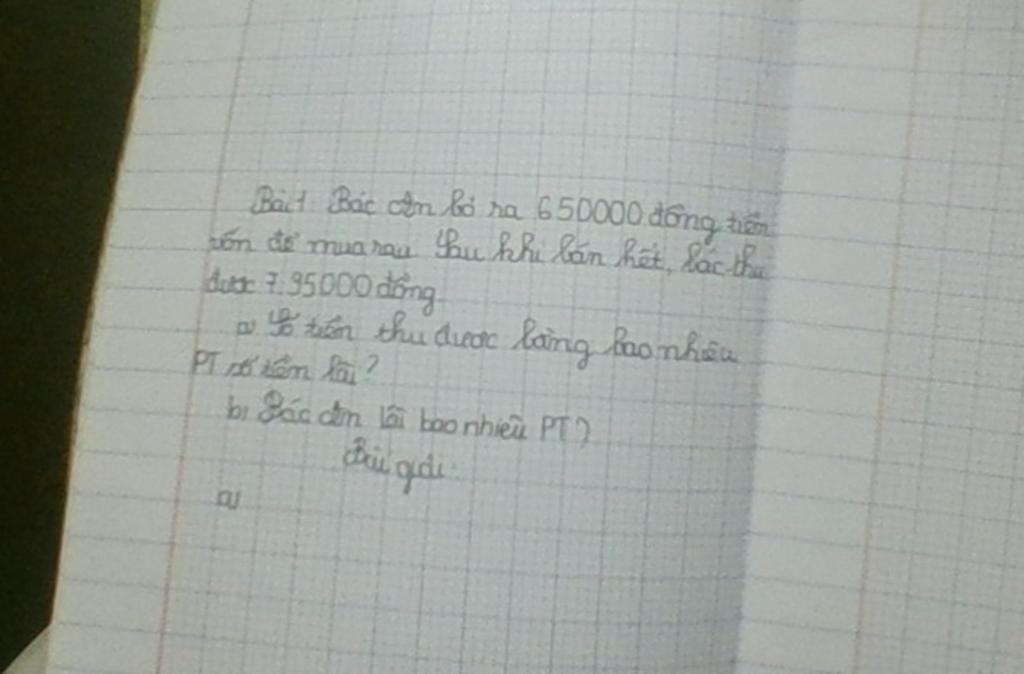 Bài 1. Bác ơn bỏ ra 650000 đồng tiền
vốn để mua rau sau khi bán hết, bác thu
được 7.95000 đồng
a) Số tiền thu được bằng bao nhiêu
PT số tiền lãi?
b) Bác ơn lãi bao nhiêu PT?
Bài giải
a)